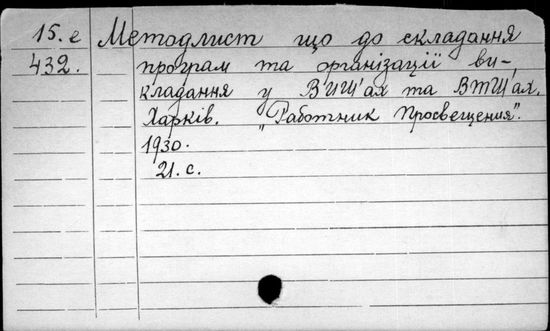 15.е Методлист що до складання
432. програм та організації ви-
кладання у ВИШ'ах та ВТШ'ах.
Харків. "Работник Просвещения".
1930.
21.с.